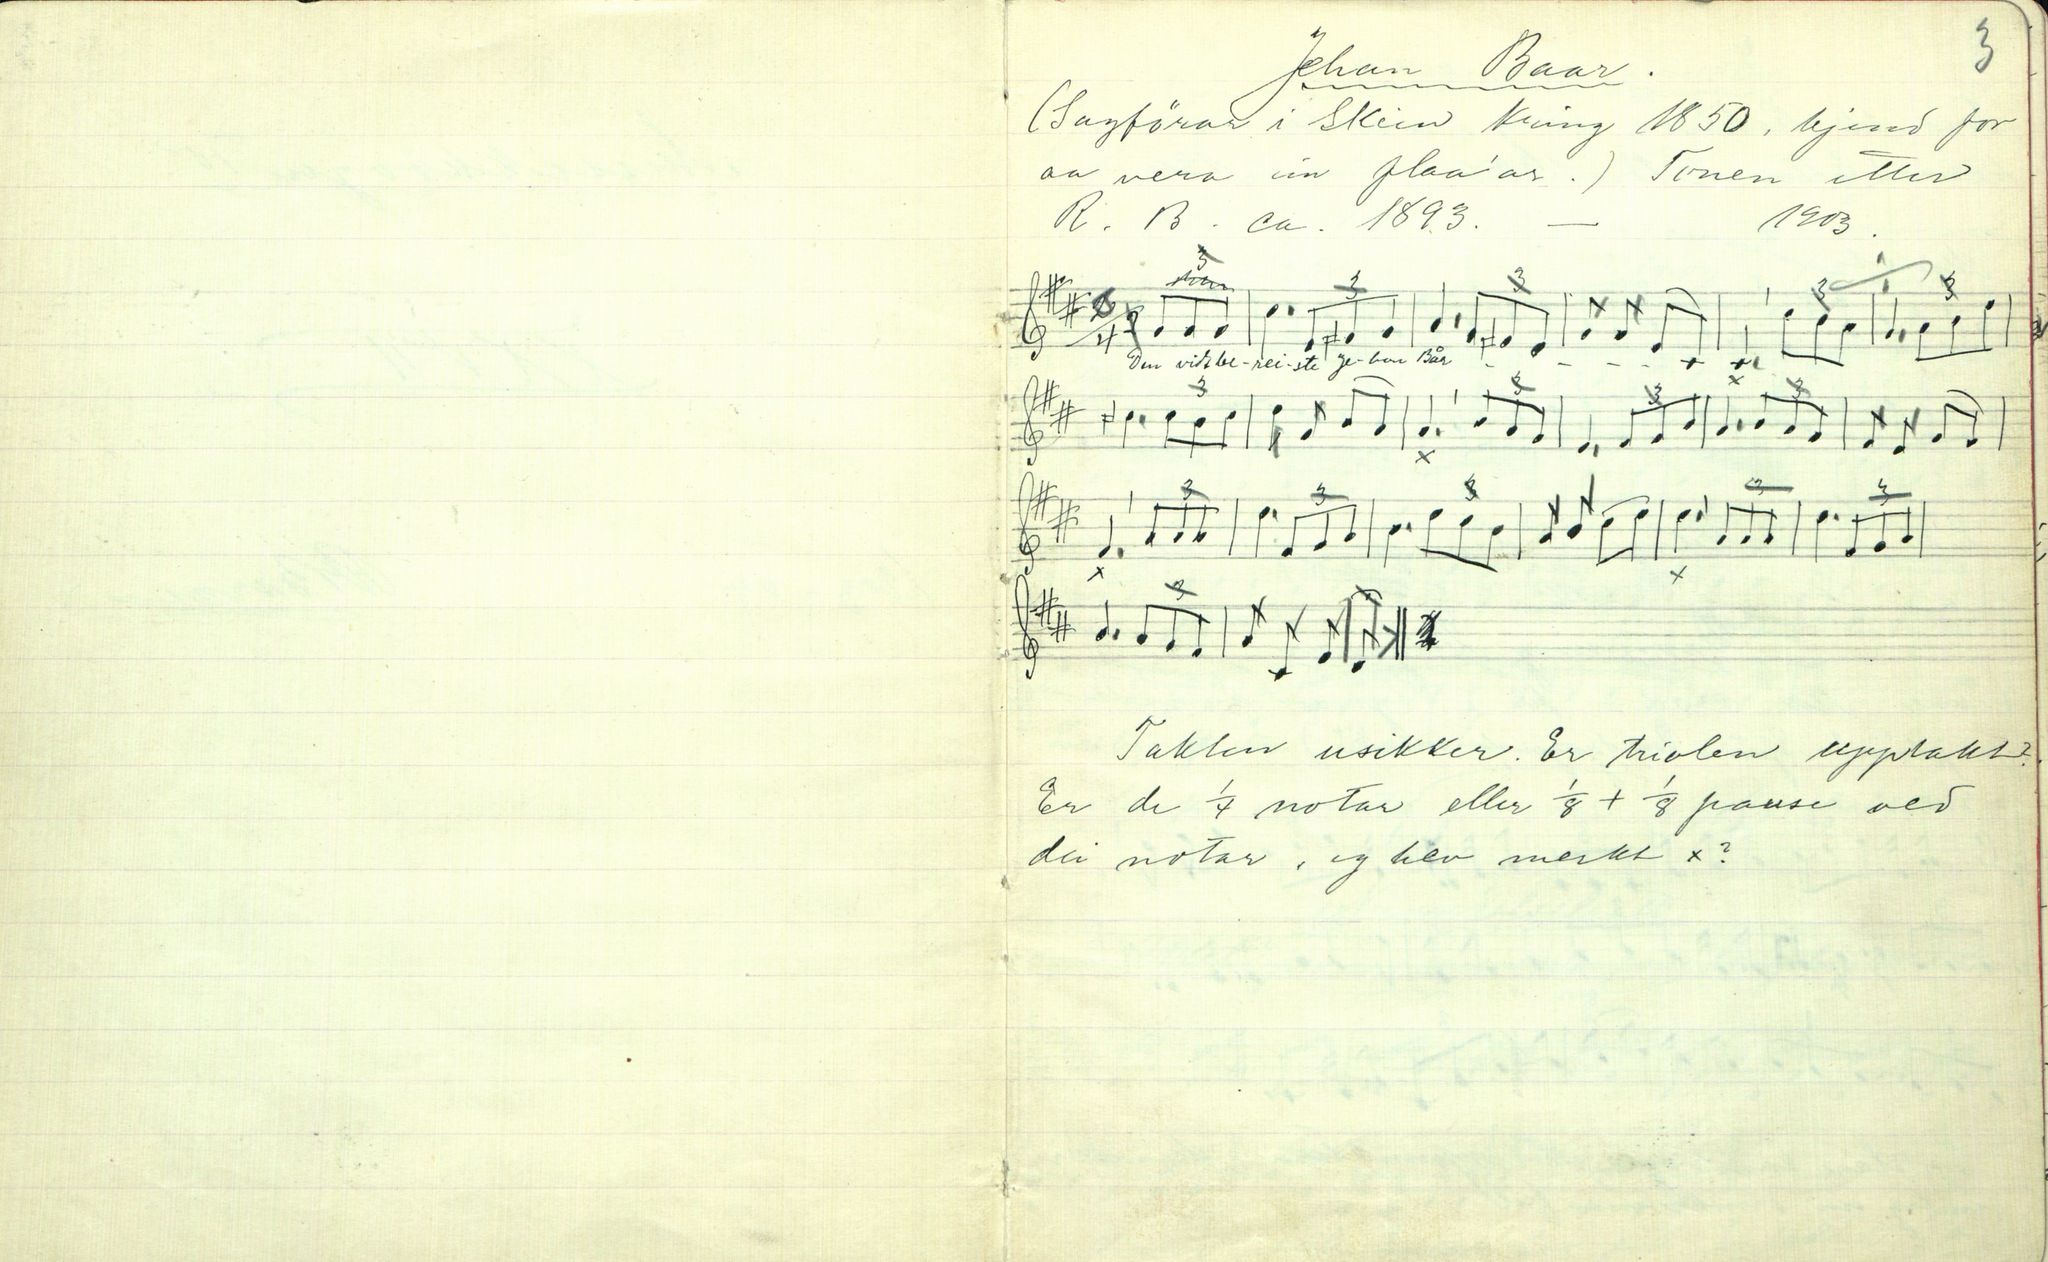 3
Jehan Baar.
(Sagførar i Skien kring 1850, kjend for
aa vera ein flaa'ar.) Tonen etter
R. B. ca. 1893. — 1903.
3 3 3 3 3
4
Den vidtbe-rei-ste Je-han Bår - - - -
x
3 3 3 3
x
3 3 3 3 3
x x
3
Takten usikker. Er triolen upptakt?
Er de 1/4 notar eller 1/8 + 1/8 pause ved
dei notar, eg hev merkt x?